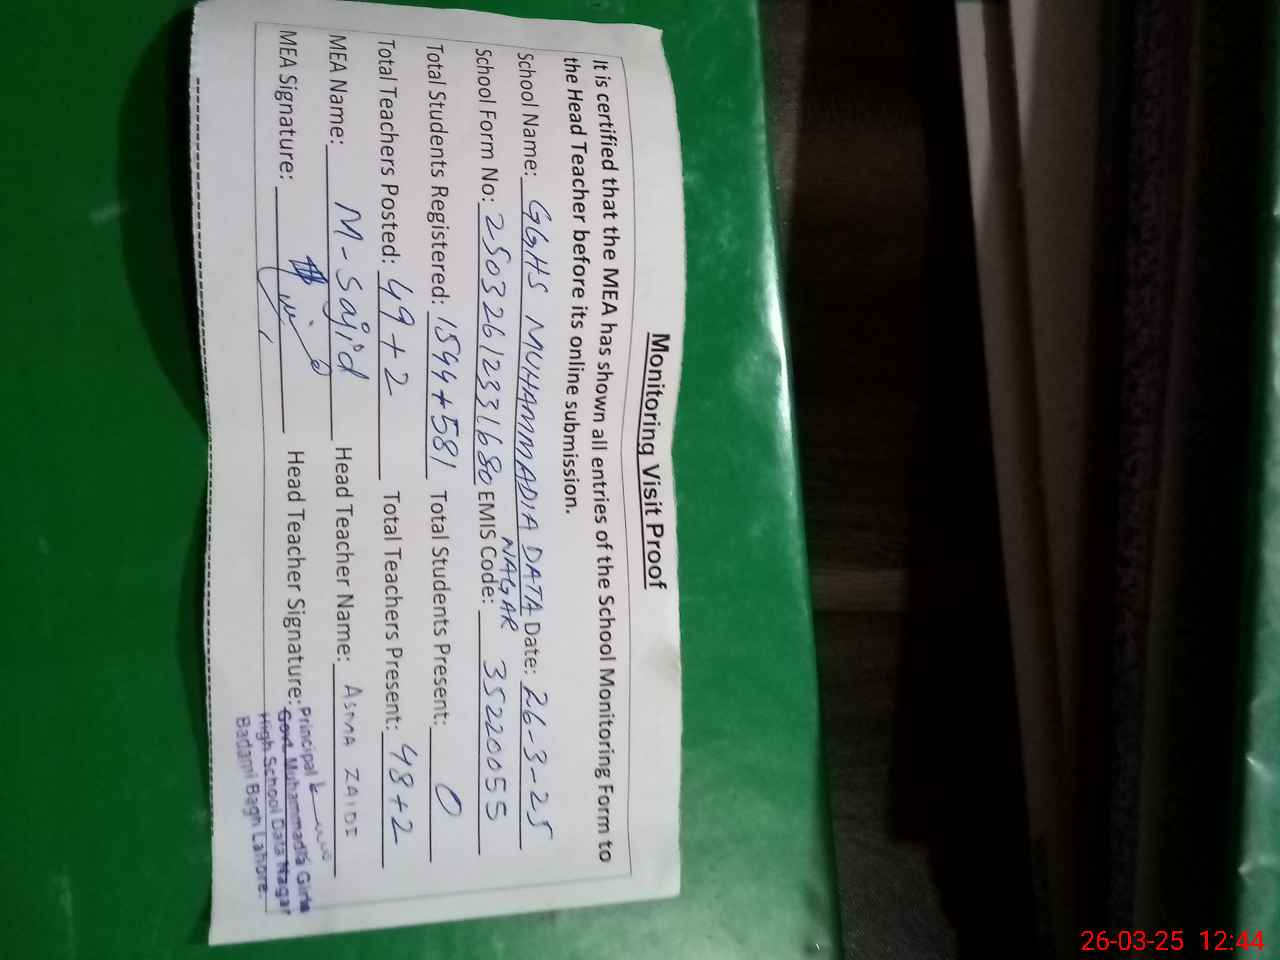 Monitoring Visit Proof
It is certified that the MEA has shown all entries of the School Monitoring Form to
the Head Teacher before its online submission.
School Name: GGHS MUHAMMADIA DATA NAGAR Date: 26-3-25
School Form No: 25032612331680 EMIS Code: 35220055
Total Students Registered: 1544+581 Total Students Present: 0
Total Teachers Posted: 49+2 Total Teachers Present: 48+2
MEA Name: M-Sajid Head Teacher Name: ASMA ZAIDI
MEA Signature: Head Teacher Signature:
Principal
Govt. Muhammadia Girls
High School Data Nagar
Badami Bagh Lahore.
26-03-25 12:44